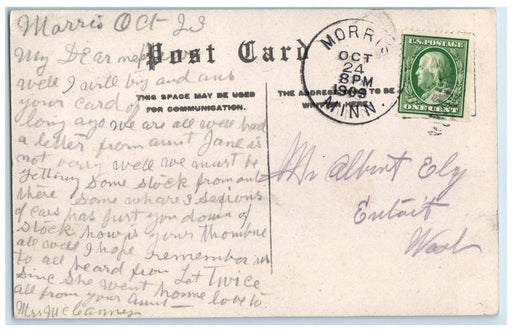 Morris Oct 23
My Dear nephew
Post Card
well I will try and ans
THIS SPACE MAY BE USED
FOR COMMUNICATION.
THE ADDRESS TO BE
WRITTEN HERE.
your card of
long ago we are all well had
a letter from aunt Jane is
not very well we must be
getting some stock from out
there some whare 3
of cars has just down of
stock how is your thombe
all well I hope remember us
to all heard from Let Twice
sinc she went home love to
all from your Aunt
Mrs
MORRIS
OCT
24
8PM
1909
MINN.
U.S. POSTAGE
ONE CENT
Mr Albert Ely
Entiat
Wash